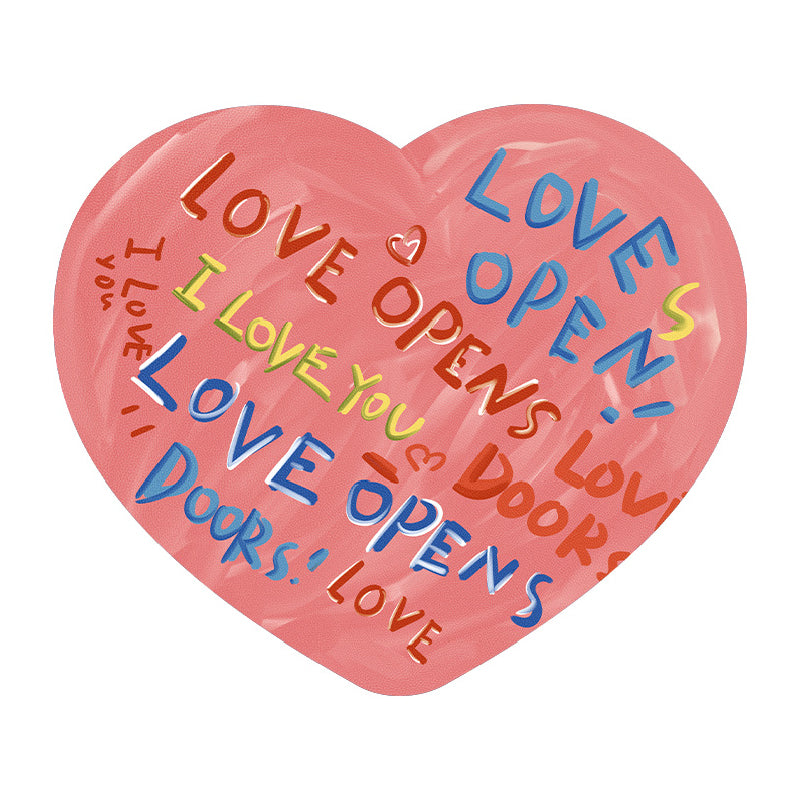 LOVE OPENS
DOORS
LOVE
OPEN!
S
I LOVE YOU
I LOVE
YOU
LOVE OPENS
DOORS!
LOVE
LOVE